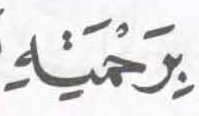 بِرَحْمَتِهِ